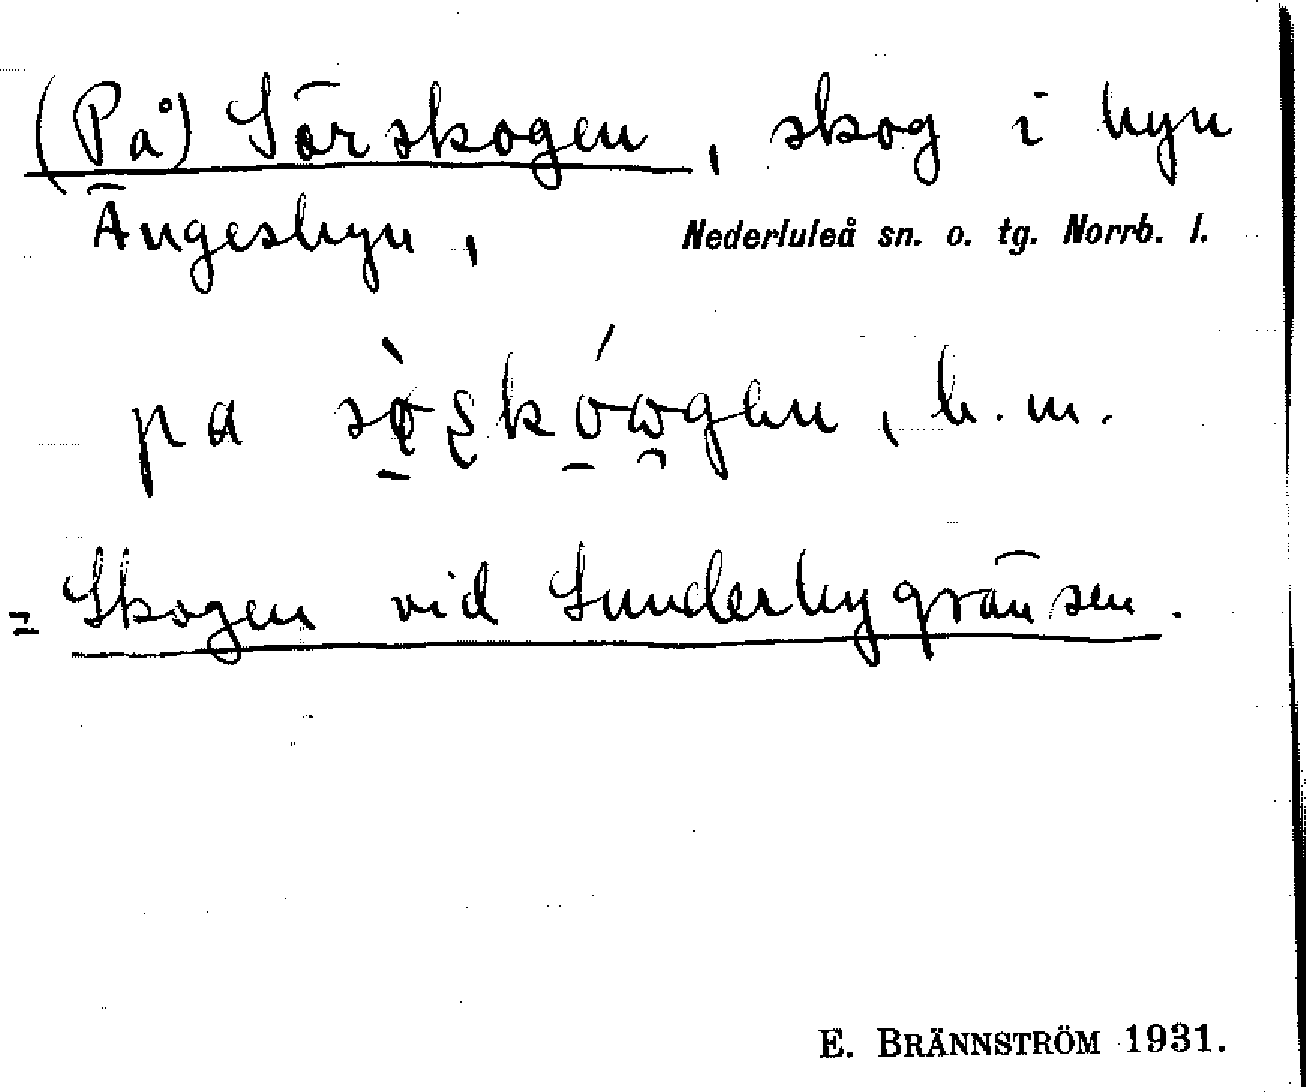 (På) Sörskogen, skog i byn
Ängesbyn, Nederluleå sn. o. tg. Norrb. l.
pa , b. m.
= Skogen vid Sunderbygränsen.
E. BRÄNNSTRÖM 1931.